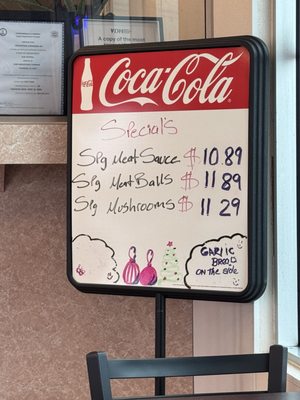 Coca-Cola
Special's
Spg Meat Sauce $10.89
Spg Meat Balls $11 89
Spg Mushrooms $11 29
GARLIC
BREAD
ON THE SIDE